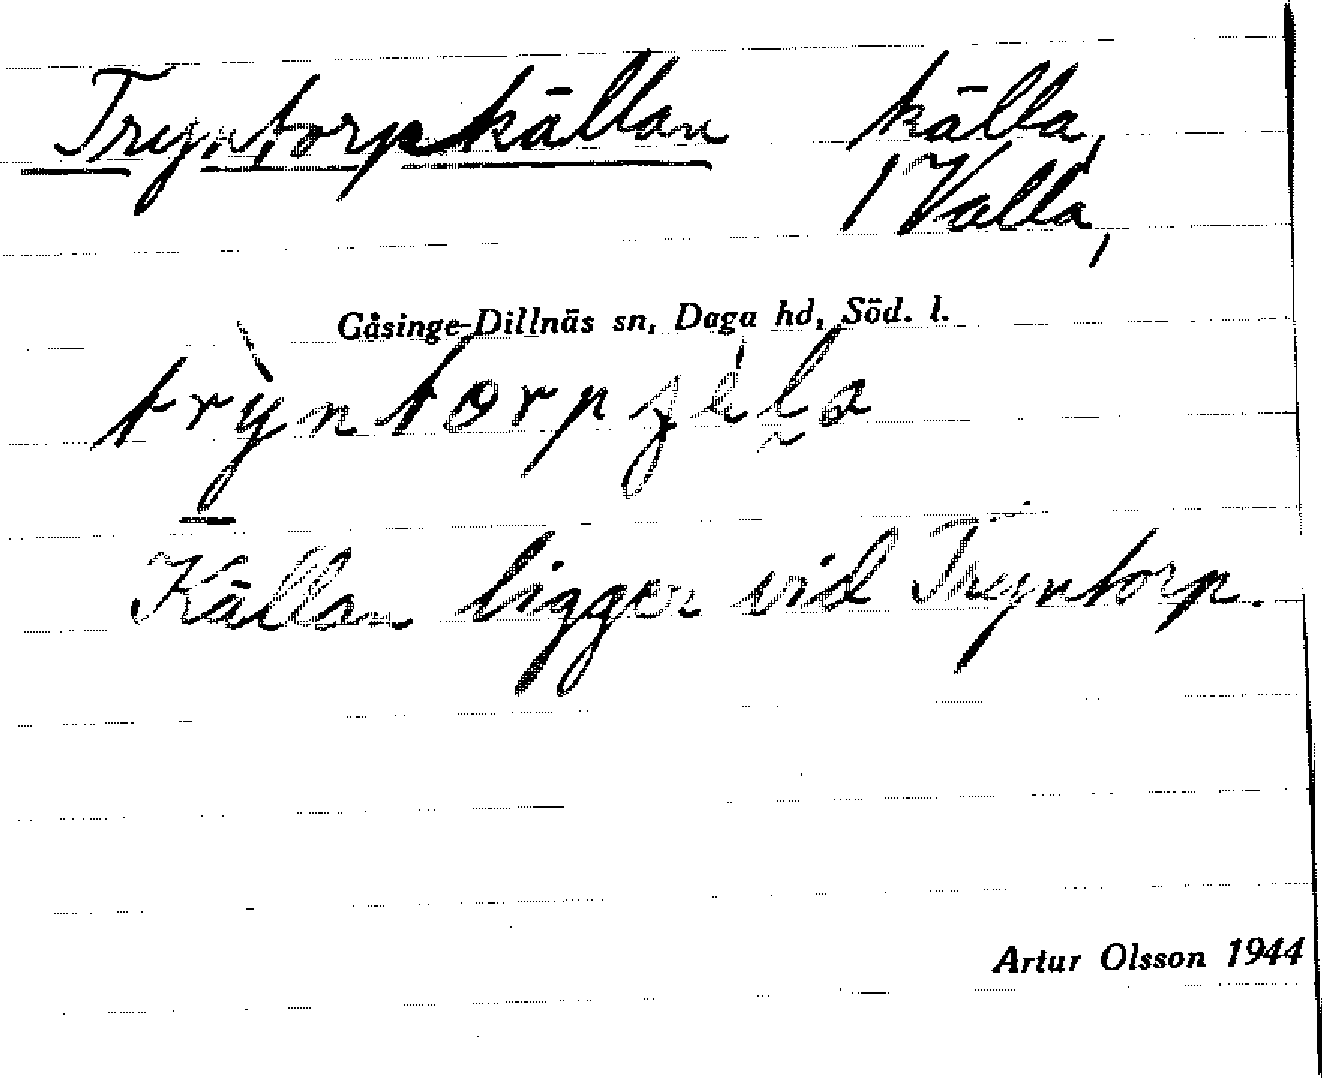 Tryntorpkällan källa,
1 Valla,
Gåsinge-Dillnäs sn, Daga hd, Söd. l.
Källan ligger vid Tryntorp.
Artur Olsson 1944